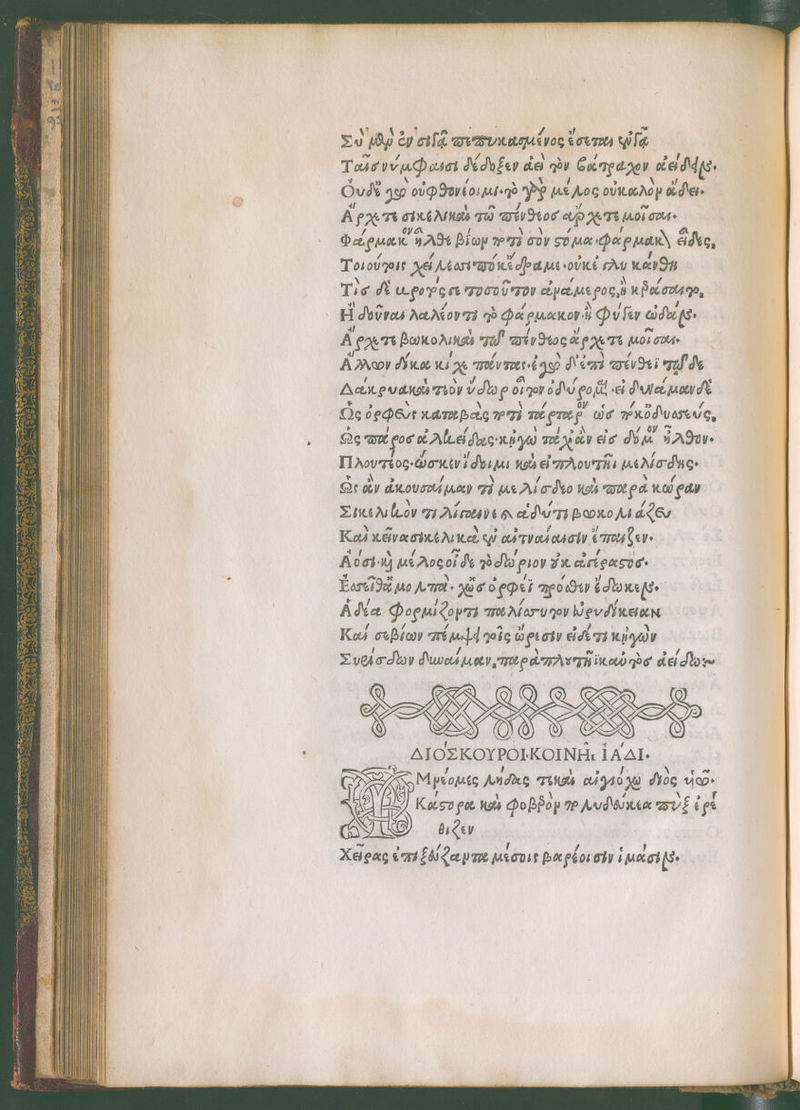 Σὺ μὲν ἐν σιγᾷ πεπυκασμένος ἔσεται ἐν γᾷ
Ταῖς νύμφαισι δέδοξεν ἀεὶ τὸν βάτραχον ἀείδεν.
Οὐδὲ ἐγὼ οὐ φθονέοιμι· τὸ γὰρ μέλος οὐ καλὸν ᾄδει.
Ἄρχετε σικελικαὶ τῶ πένθεος ἄρχετε μοῖσαι.
Φάρμακον ἦλθε βίων ποτὶ σὸν στόμα· φάρμακον εἶδες,
Τοιούτοις χείλεσι ποτέδραμε· οὐκ ἐγλυκάνθη
Τίς δὲ βροτὸς τοσοῦτον ἀνάμερος, ἢ κράσαι το,
Ἢ δοῦναι λαλέοντι τὸ φάρμακον· ἢ φύγεν ᾠδάν.
Ἄρχετε βωκολικαὶ τοῦ πένθεος ἄρχετε μοῖσαι.
Ἄλλων δίκα κίχε πάντας· ἐγὼ δ' ἐπὶ πένθεϊ τοῦδε
Δάκρυα καὶ τεὸν ὕδωρ οἶτον ὀδύρομαι· εἰ δυνάμαν δὲ
Ὡς ὀρφεὺς καταβὰς ποτὶ τάρταρον ὡς ποκ' ὀδυσσεύς,
Ὡς πάρος ἀλκείδας· κἠγὼ τάχ' ἂν εἰς δόμον ἦλθον.
Πλουτέος· ὥς κεν ἴδοιμι καὶ εἰ πλουτῆϊ μελίσδης.
Ὡς ἂν ἀκουσαίμαν τὶ μελίσδεο καὶ παρὰ κώραν
Σικελικόν τι λίγαινε καὶ ἁδύ τι βωκολιάζευ
Καὶ κείνα σικελικὰ ἐν αἰτναίαισιν ἔπαιξεν.
Ἀόσι· καὶ μέλος οἶδε τὸ δώριον οὐκ ἀγέραστος.
Ἐσσεῖθ' ἁ μολπά. χὡς ὀρφεῖ πρόσθεν ἔδωκεν.
Ἁδέα φορμίζοντι παλίσσυτον εὐρυδίκειαν
Καὶ σὲ βίων πέμψει τοῖς ὤρεσιν εἰ δέ τι κἠγὼν
Συρίσδων δυναίμαν, παρὰ πλουτῆϊ κ' αὐτὸς ἀείδω
ΔΙΟΣΚΟΥΡΟΙ· ΚΟΙΝΗι ΙΑΔΙ.
Υμνέομες λήδας τε καὶ αἰγιόχω διὸς υἱώ.
Κάστορα καὶ φοβερὸν πολυδεύκεα πὺξ ἐρε
θίζεν
Χεῖρας ἐπιζεύξαντα μέσοις βοέοισιν ἱμᾶσιν.